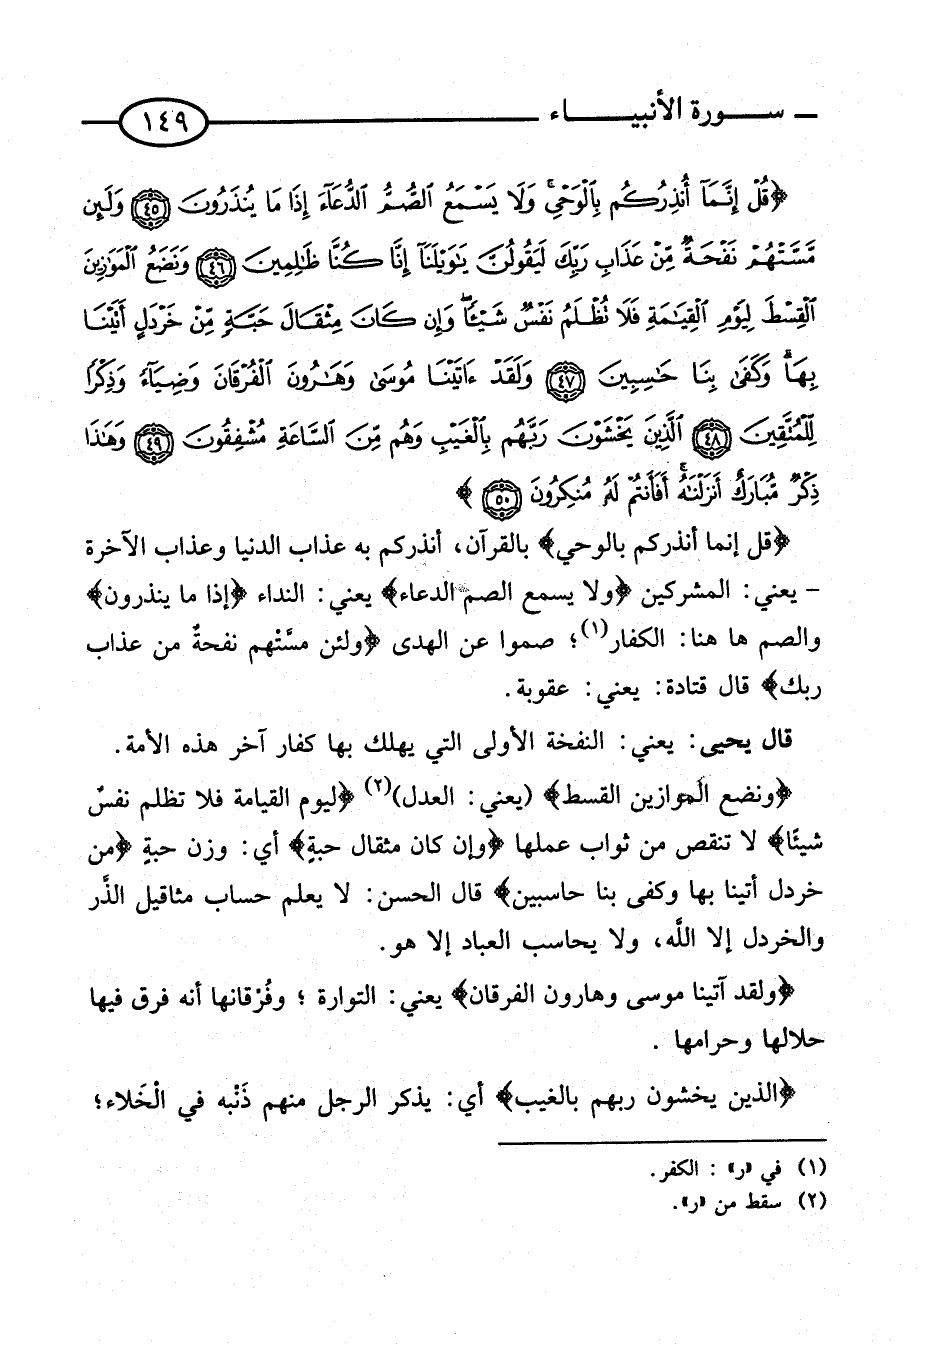 سورة الأنبياء ١٤٩
﴿قُلْ إِنَّمَآ أُنذِرُكُم بِٱلْوَحْىِ ۚ وَلَا يَسْمَعُ ٱلصُّمُّ ٱلدُّعَآءَ إِذَا مَا يُنذَرُونَ ٤٥ وَلَئِن
مَّسَّتْهُمْ نَفْحَةٌ مِّنْ عَذَابِ رَبِّكَ لَيَقُولُنَّ يَٰوَيْلَنَآ إِنَّا كُنَّا ظَٰلِمِينَ ٤٦ وَنَضَعُ ٱلْمَوَٰزِينَ
ٱلْقِسْطَ لِيَوْمِ ٱلْقِيَٰمَةِ فَلَا تُظْلَمُ نَفْسٌ شَيْـًٔا ۖ وَإِن كَانَ مِثْقَالَ حَبَّةٍ مِّنْ خَرْدَلٍ أَتَيْنَا
بِهَا ۗ وَكَفَىٰ بِنَا حَٰسِبِينَ ٤٧ وَلَقَدْ ءَاتَيْنَا مُوسَىٰ وَهَٰرُونَ ٱلْفُرْقَانَ وَضِيَآءً وَذِكْرًا
لِّلْمُتَّقِينَ ٤٨ ٱلَّذِينَ يَخْشَوْنَ رَبَّهُم بِٱلْغَيْبِ وَهُم مِّنَ ٱلسَّاعَةِ مُشْفِقُونَ ٤٩ وَهَٰذَا
ذِكْرٌ مُّبَارَكٌ أَنزَلْنَٰهُ ۚ أَفَأَنتُمْ لَهُۥ مُنكِرُونَ ٥٠ ﴾
﴿قل إنما أنذركم بالوحي﴾ بالقرآن، أنذركم به عذاب الدنيا وعذاب الآخرة
- يعني: المشركين ﴿ولا يسمع الصم الدعاء﴾ يعني: النداء ﴿إذا ما ينذرون﴾
والصم ها هنا: الكفار(١)؛ صموا عن الهدى ﴿ولئن مسَّتْهم نفحةٌ من عذاب
ربك﴾ قال قتادة: يعني: عقوبة.
قال يحيى: يعني: النفخة الأولى التي يهلك بها كفار آخر هذه الأمة.
﴿ونضع الموازين القسط﴾ (يعني: العدل)(٢) ﴿ليوم القيامة فلا تظلم نفسٌ
شيئًا﴾ لا تنقص من ثواب عملها ﴿وإن كان مثقال حبةٍ﴾ أي: وزن حبةٍ ﴿من
خردل أتينا بها وكفى بنا حاسبين﴾ قال الحسن: لا يعلم حساب مثاقيل الذَّر
والخردل إلا اللَّه، ولا يحاسب العباد إلا هو.
﴿ولقد آتينا موسى وهارون الفرقان﴾ يعني: التوارة ؛ وفُرْقانها أنه فرق فيها
حلالها وحرامها .
﴿الذين يخشون ربهم بالغيب﴾ أي: يذكر الرجل منهم ذَنْبه في الْخَلاء؛
(١) في «ر» : الكفر.
(٢) سقط من «ر».